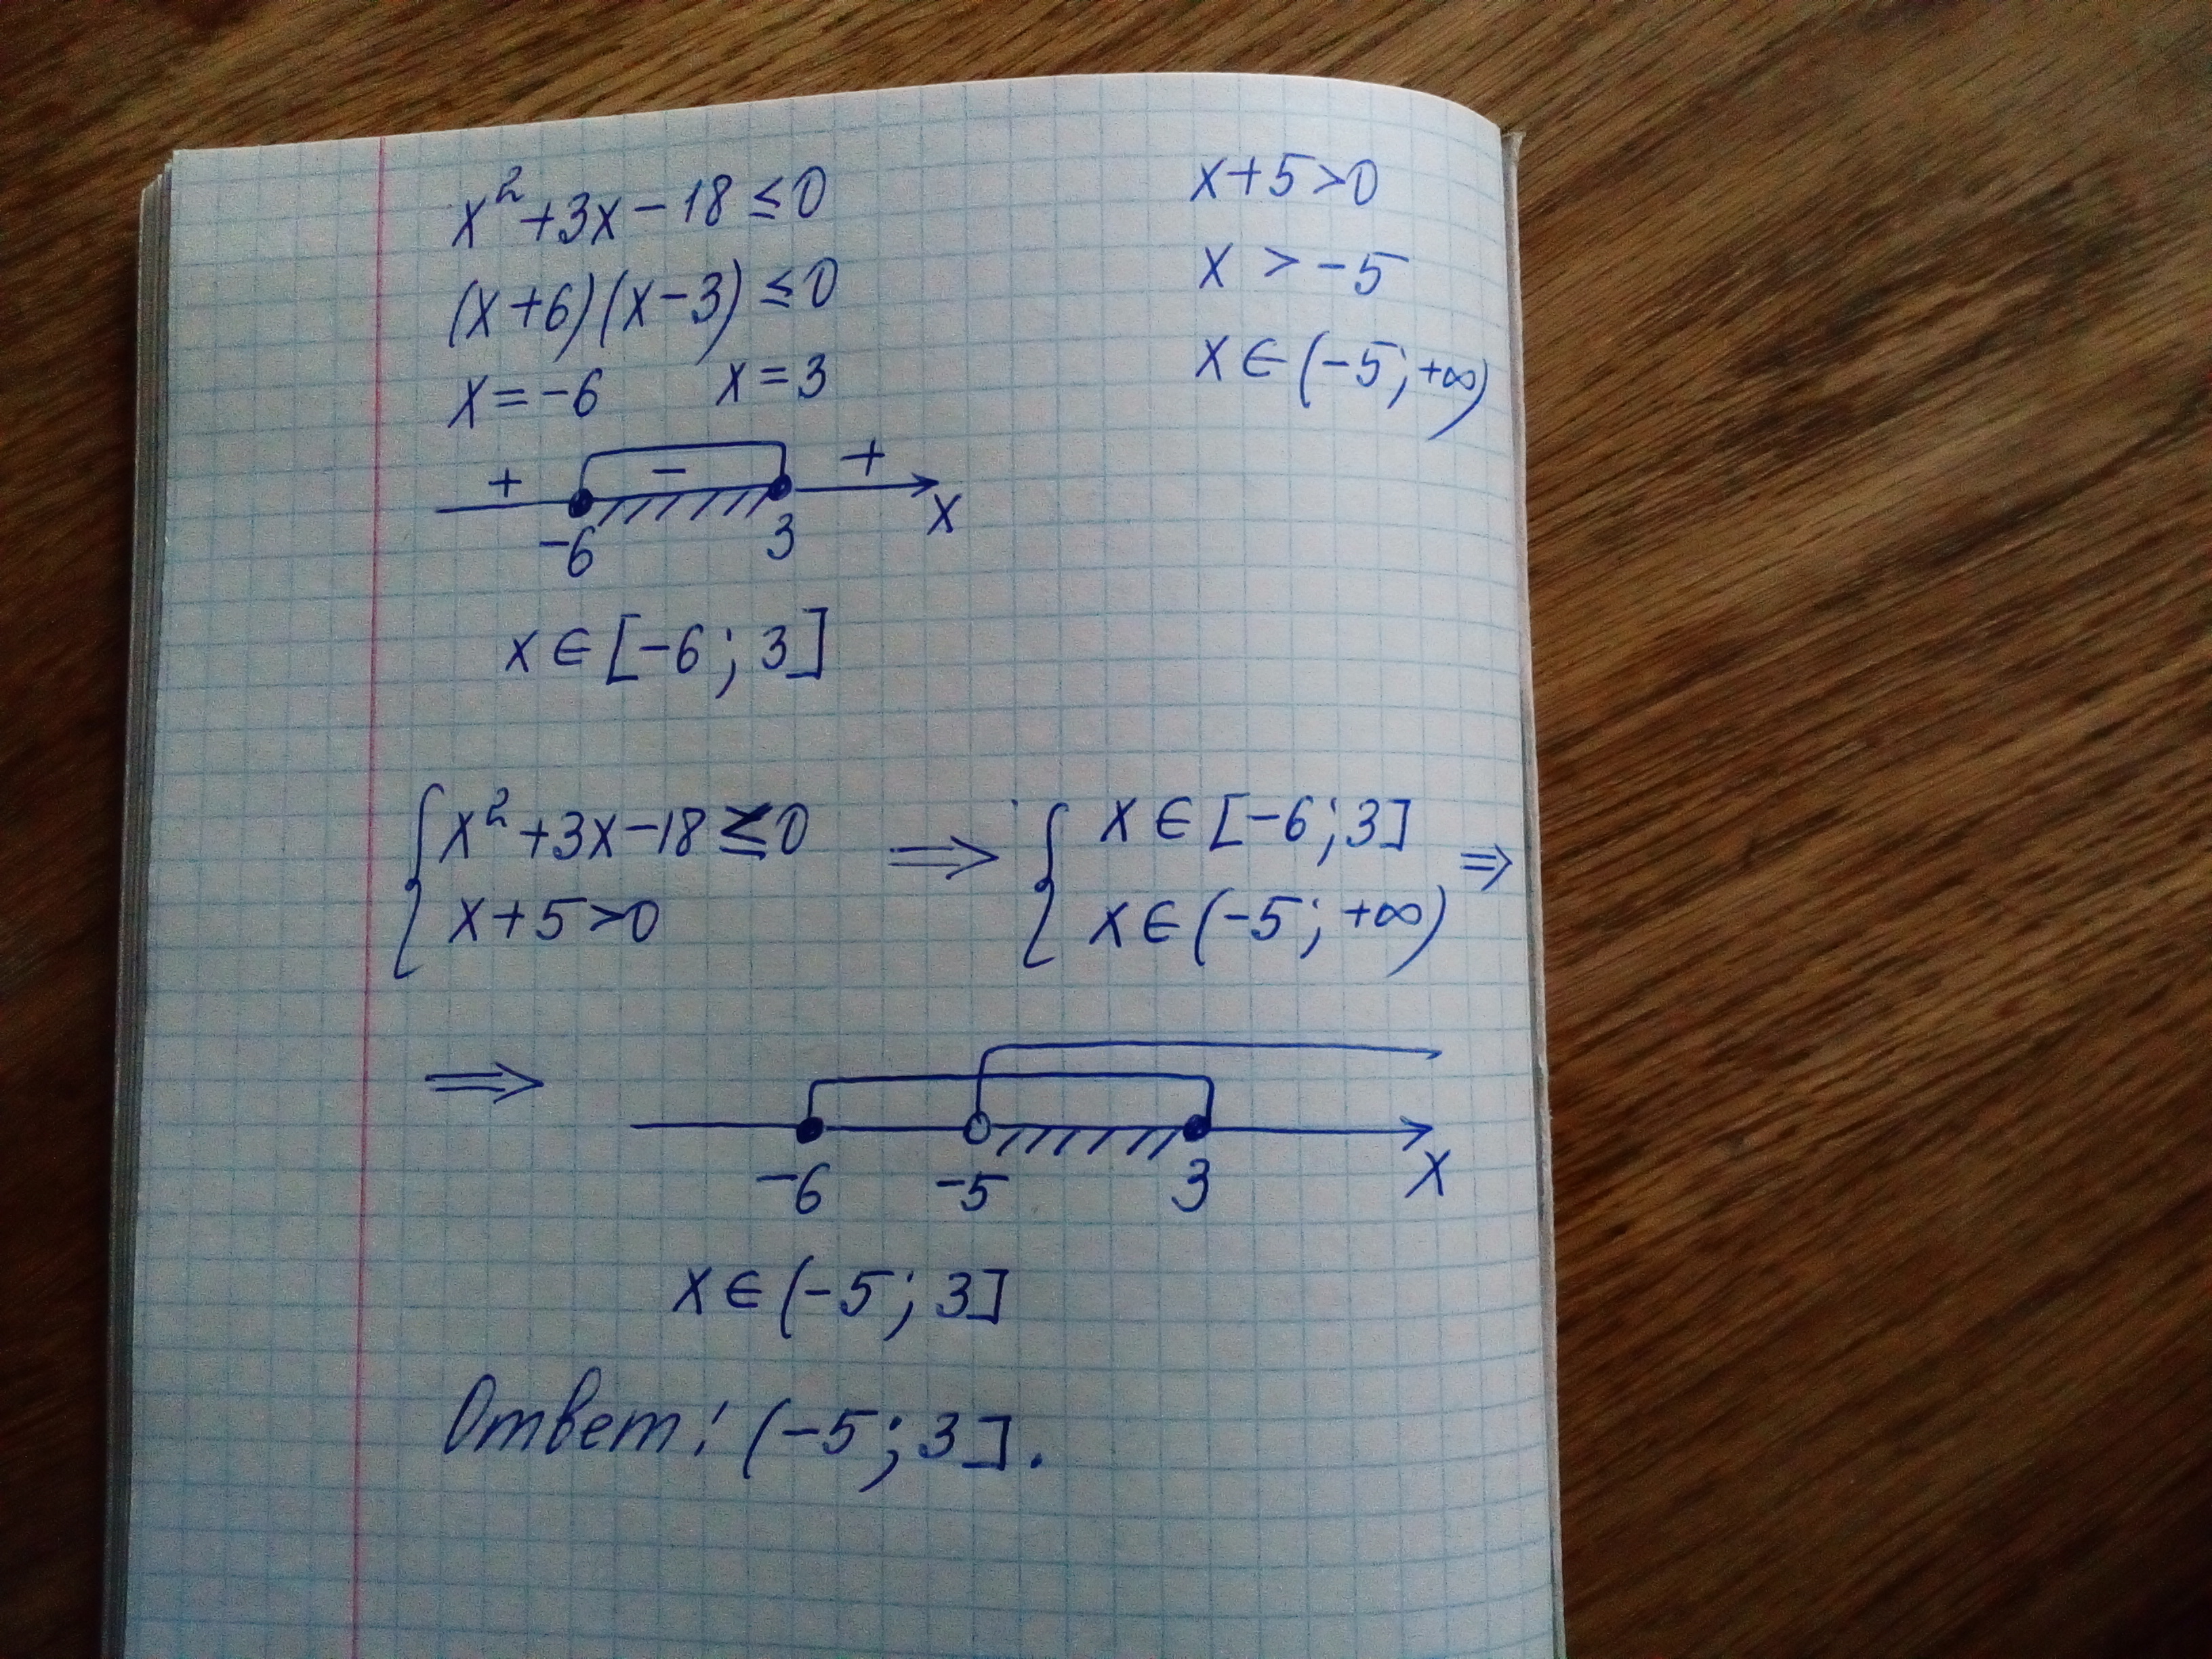 x² + 3x − 18 ≤ 0
(x + 6)(x − 3) ≤ 0
x = −6 x = 3
+ − +
−6 3 x
x ∈ [−6; 3]
x + 5 > 0
x > −5
x ∈ (−5; +∞)
{ x² + 3x − 18 ≤ 0 ⇒ { x ∈ [−6; 3] ⇒
x + 5 > 0 x ∈ (−5; +∞)
⇒
−6 −5 3 x
x ∈ (−5; 3]
Ответ: (−5; 3].